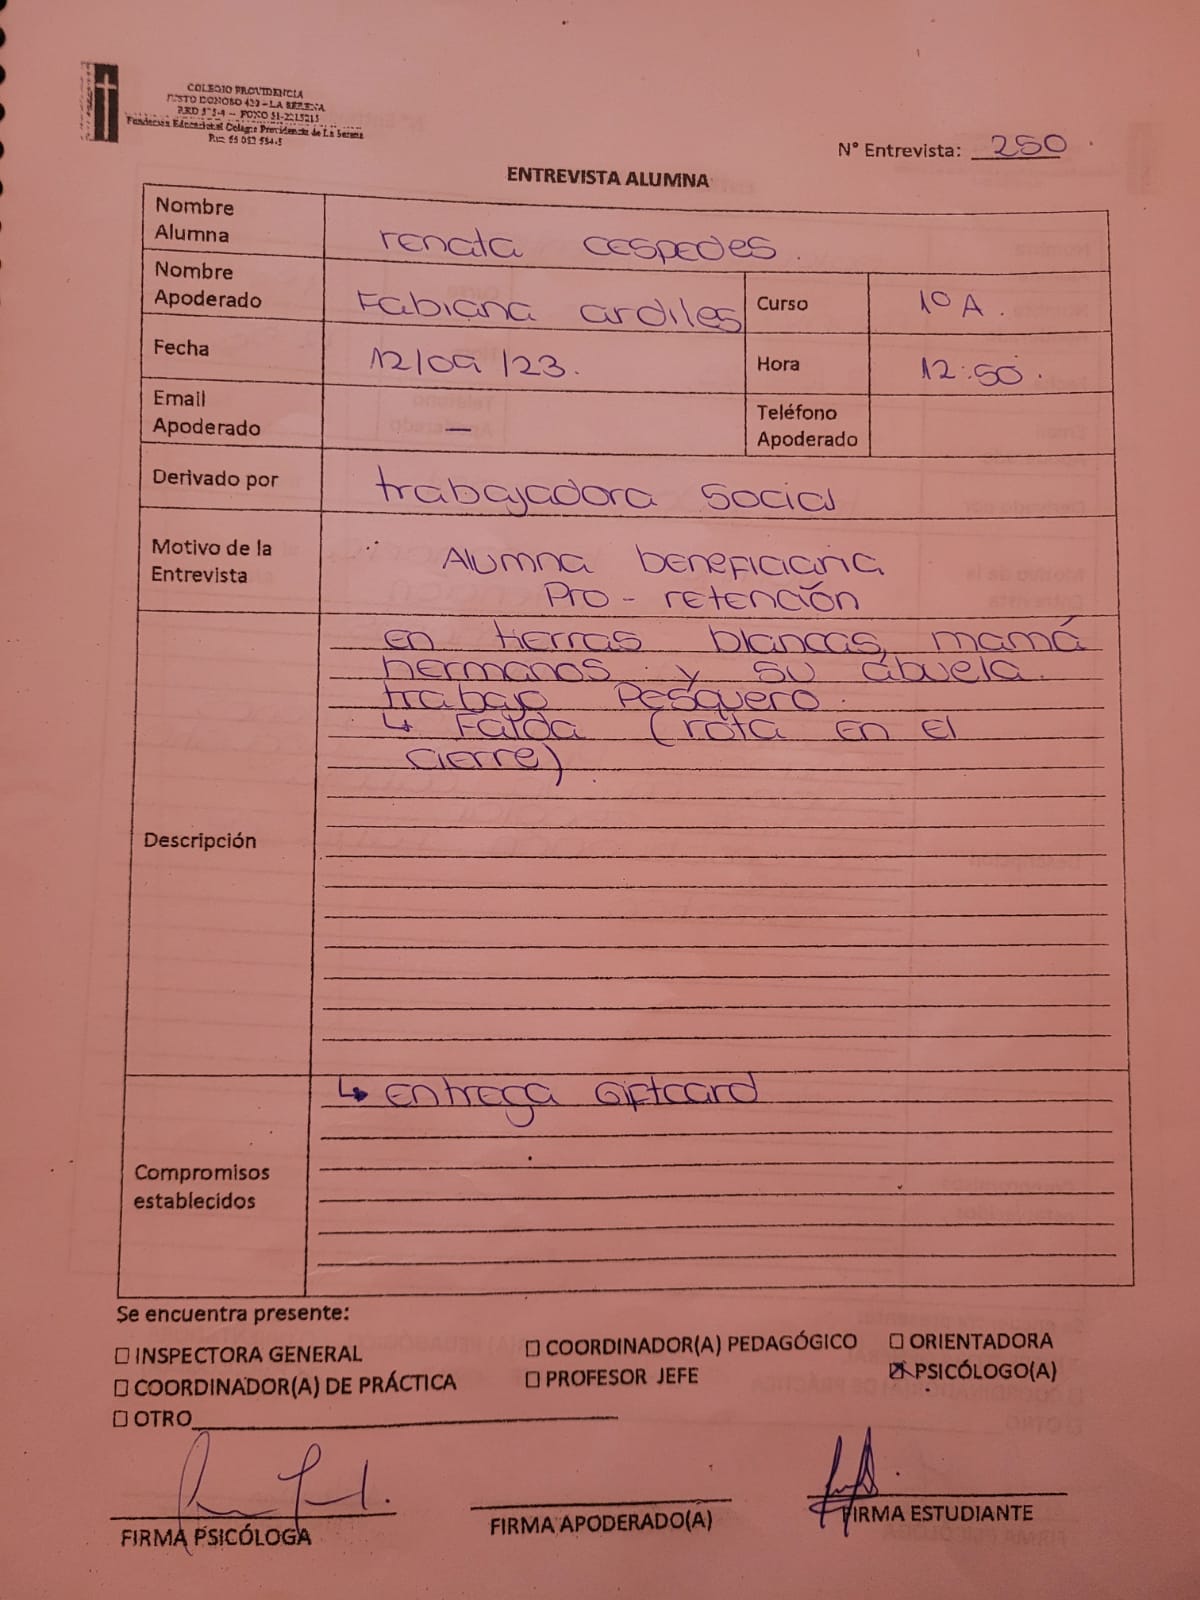 COLEGIO PROVIDENCIA
JUSTO DONOSO 420 - LA SERENA
RBD 575-4 - FONO 51-2215215
Fundación Educacional Colegio Providencia de La Serena
Nº Entrevista: 250
ENTREVISTA ALUMNA
Nombre Alumna renata cespedes.
Nombre Apoderado Fabiana ardiles Curso 1º A.
Fecha 12/09/23. Hora 12:50.
Email Apoderado — Teléfono Apoderado
Derivado por trabajadora social
Motivo de la Entrevista Alumna beneficiaria
Pro-retención
en tierras blancas, mamá
hermanos y su abuela.
trabajo Pesquero.
↳ Falda (rota en el
cierre)
Descripción
↳ entrega Giftcard
Compromisos establecidos
Se encuentra presente:
☐ INSPECTORA GENERAL ☐ COORDINADOR(A) PEDAGÓGICO ☐ ORIENTADORA
☐ COORDINADOR(A) DE PRÁCTICA ☐ PROFESOR JEFE ☒ PSICÓLOGO(A)
☐ OTRO
FIRMA PSICÓLOGA FIRMA APODERADO(A) FIRMA ESTUDIANTE